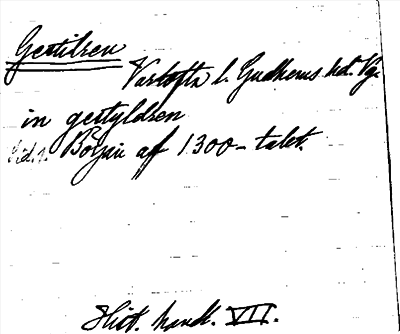 Gestilren
Vartofta l. Gudhems hd. Vg.
in gestyldren
Början af 1300-talet.
Hist. handl. VII.